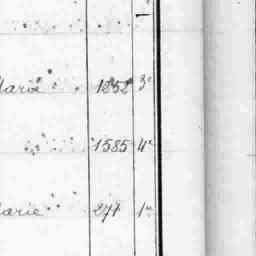 Marie 1852 3e
1585 4e
Marie 271 1e